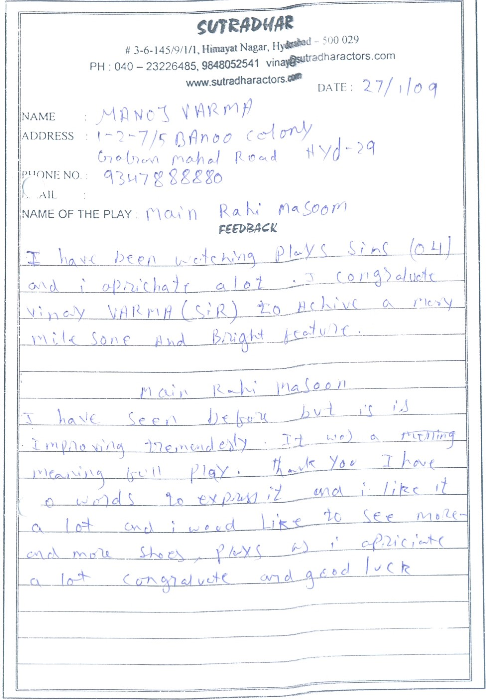 SUTRADHAR
# 3-6-145/9/1/1, Himayat Nagar, Hyderabad - 500 029
PH : 040 – 23226485, 9848052541 vinay@sutradharactors.com
www.sutradharactors.com
DATE : 27/1/09
NAME : MANOJ VARMA
ADDRESS : 1-2-7/5 BAnoo colony
mahal Road Hyd-29
PHONE NO. : 9347888880
AIL :
NAME OF THE PLAY : Main Rahi Masoom
FEEDBACK
I have been watching plays sins (04)
and i aprichate alot . I congraduate
vinay VARMA (SIR) to Achive a mery
mile sone And Bright feature.
Main Rahi Masoom
I have seen before but is is
Improving tremenderly. It was a
meaning full play. thank you I have
o words to express it and i like it
a lot and i wood like to see more
and more shoes, plays as i apriciate
a lot congraduate and good luck